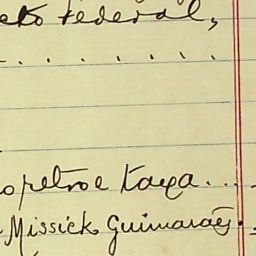 Federal,
. . . . . . . .
petroe taxa...
Missick Guimarães.